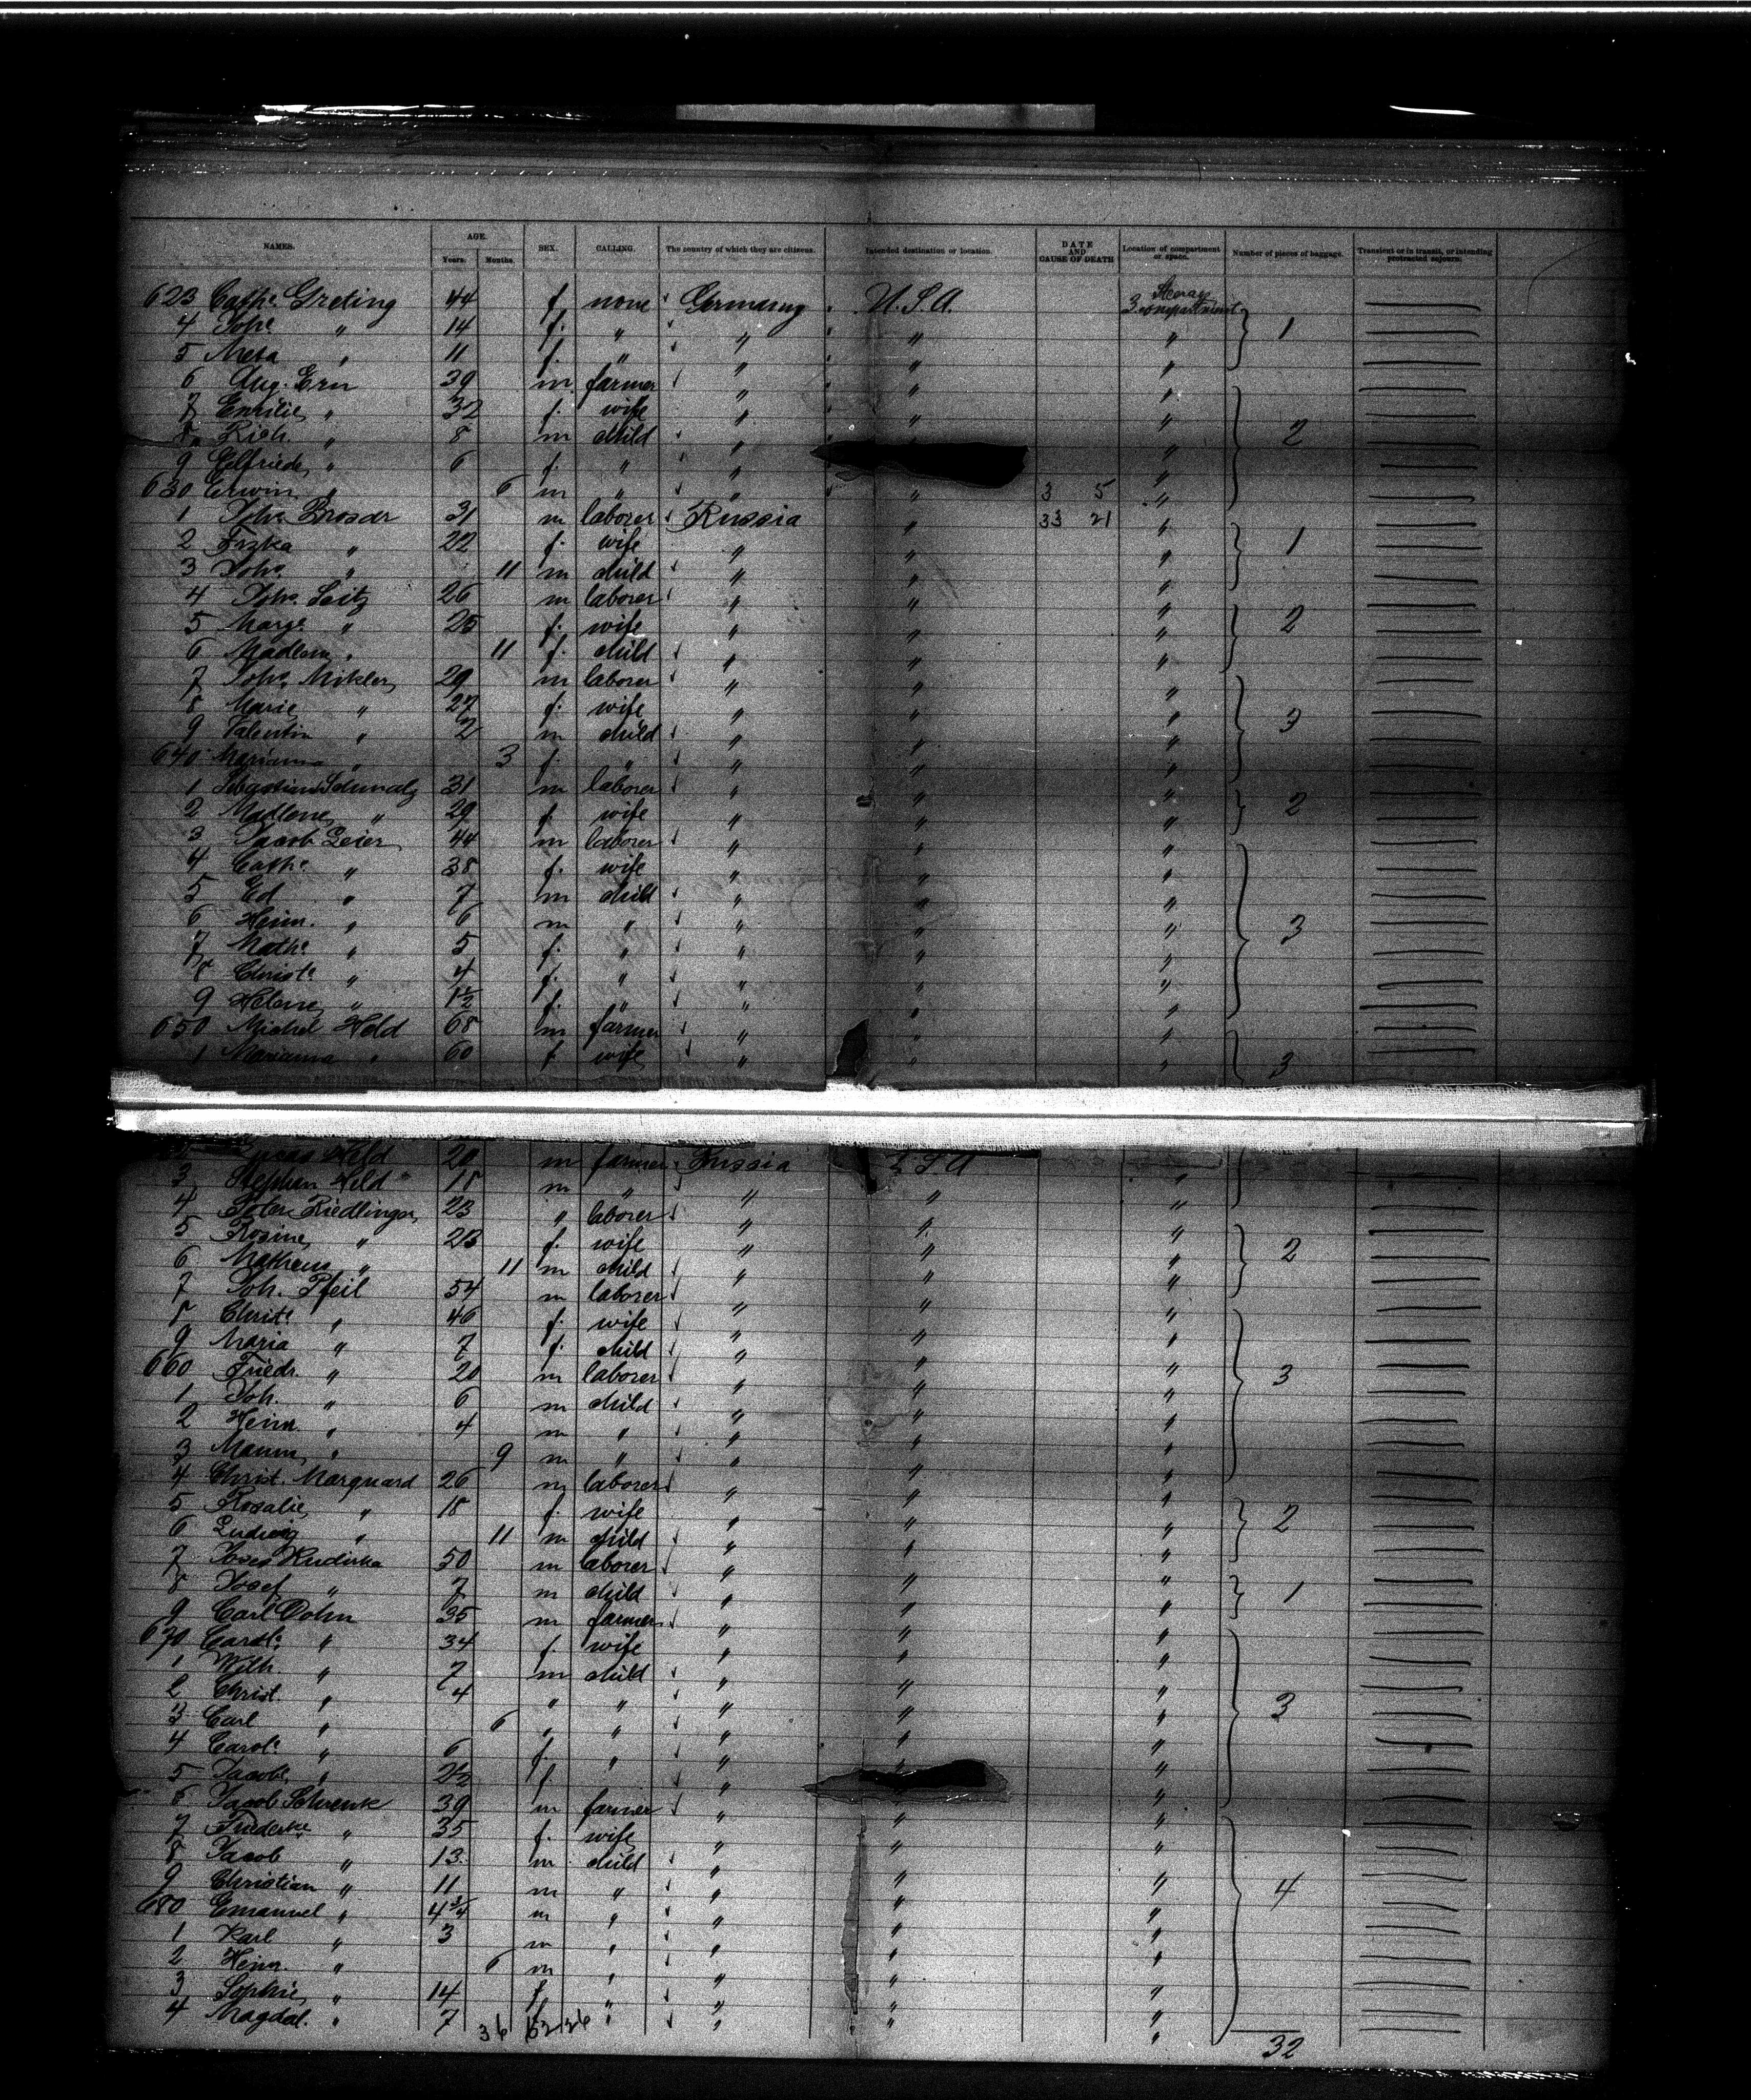 NAMES. AGE. SEX. CALLING. The country of which they are citizens. Intended destination or location. DATE AND CAUSE OF DEATH Location of compartment or space. Number of pieces of baggage. Transient or in transit, or intending protracted sojourn.
Years. Months.
623 Cathe Greting 44 f. none Germany U.S.A. 3. compartment
4 Johe " 14 f. " " " " 1
5 Meta " 11 f. " " " "
6 Aug. Ern 39 m farmer " " "
7 Emilie " 32 f. wife " " "
8 Rich. " 8 m child " " " 2
9 " 6 f. " " "
630 Erwin " 6 m " " " 3 5 "
1 31 m laborer Russia " 33 21 "
2 " 22 f. wife " " " 1
3 Joh. " 11 m child " " "
4 Joh. Seitz 26 m laborer " " "
5 Marge " 25 f. wife " " " 2
6 Madlena " 11 f. child " " "
7 Joh. Mikler 29 m laborer " " "
8 Marie " 27 f. wife " " " 3
9 Valentin " 2 m child " " "
640 Marianna " 3 f. " " " "
1 Sebastian Schmalz 31 m laborer " " " 2
2 Madlene " 29 f. wife " " "
3 Jacob Geier 44 m laborer " " "
4 Cathe " 38 f. wife " " "
5 Ed " 7 m child " " "
6 Heinr. " 6 m " " " " 3
7 Mathe " 5 f. " " " "
8 Christe " 4 f. " " " "
9 Helene " 1½ f. " " " "
650 Michel Held 68 m farmer " " "
1 Marianna " 60 f. wife " " " 3
Held 20 m farmer Russia
3 Stephan Held 18 m " " " "
4 Peter Riedlinger 23 " laborer " " "
5 Rosine " 23 f. wife " " " 2
6 Matheus " 11 m child " " "
7 Joh. Pfeil 54 m laborer " " "
8 Christe " 46 f. wife " " "
9 Maria " 7 f. child " " "
660 Friedr. " 20 m laborer " " " 3
1 Joh. " 6 m child " " "
2 Heinr. " 4 m " " " "
3 " 9 m " " " "
4 Christ. Marquard 26 m laborer " " "
5 Rosalie " 18 f. wife " " " 2
6 Ludwig " 11 m child " " "
7 Kudirka 50 m laborer " " "
8 Josef " 7 m child " " " 1
9 Carl Dohn 35 m farmer " " "
670 Carole " 34 f. wife " " "
1 Wilh. " 7 m child " " "
2 Christ. " 4 " " " " "
3 Carl " 6 " " " " " 3
4 Carole " 6 f. " " " "
5 Jacobe " 2½ f " "
6 Jacob Schrenk 39 m farmer " " "
7 Friederke " 35 f. wife " " "
8 Jacob " 13 m child " " "
9 Christian " 11 m " " " " 4
680 Emanuel " 4¾ m " " " "
1 Karl " 3 m " " " "
2 Heinr. " 6 m " " " "
3 Sophie " 14 f. " " " "
4 Magdal. " 7 f. " " " "
36
32